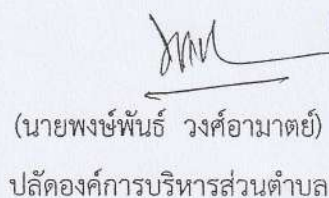 (นายพงษ์พันธ์ วงศ์อามาตย์)
ปลัดองค์การบริหารส่วนตำบล